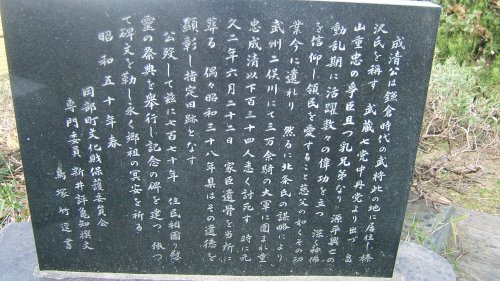 成清公は鎌倉時代の武将此の地に居住し榛
沢氏を稱す 武蔵七党中丹党より出づ 畠
山重忠の寧臣且つ乳兄弟なり 源平興亡の
動乱期に活躍数々の偉功を立つ 深く神佛
を信仰し領民を愛すること慈父の如くその功
業今に遺れり 然るに北条氏の謀略により
武州二俣川にて三万余騎の大軍に囲まれ重
忠成清以下百三十四人悉く討死す 時に元
久二年六月二十二日 家臣遺骨を当所に
葬る 偶々昭和三十八年県はその遺徳を
顕彰し指定旧跡となす
公歿して茲に七百七十年 住民相図り慰
霊の祭典を挙行し記念の碑を建つ 依つ
て碑文を勒し永く郷祖の冥安を祈る
昭和五十年春
岡部町文化財保護委員会
専門委員 新井許亀知撰文
鳥塚竹道書